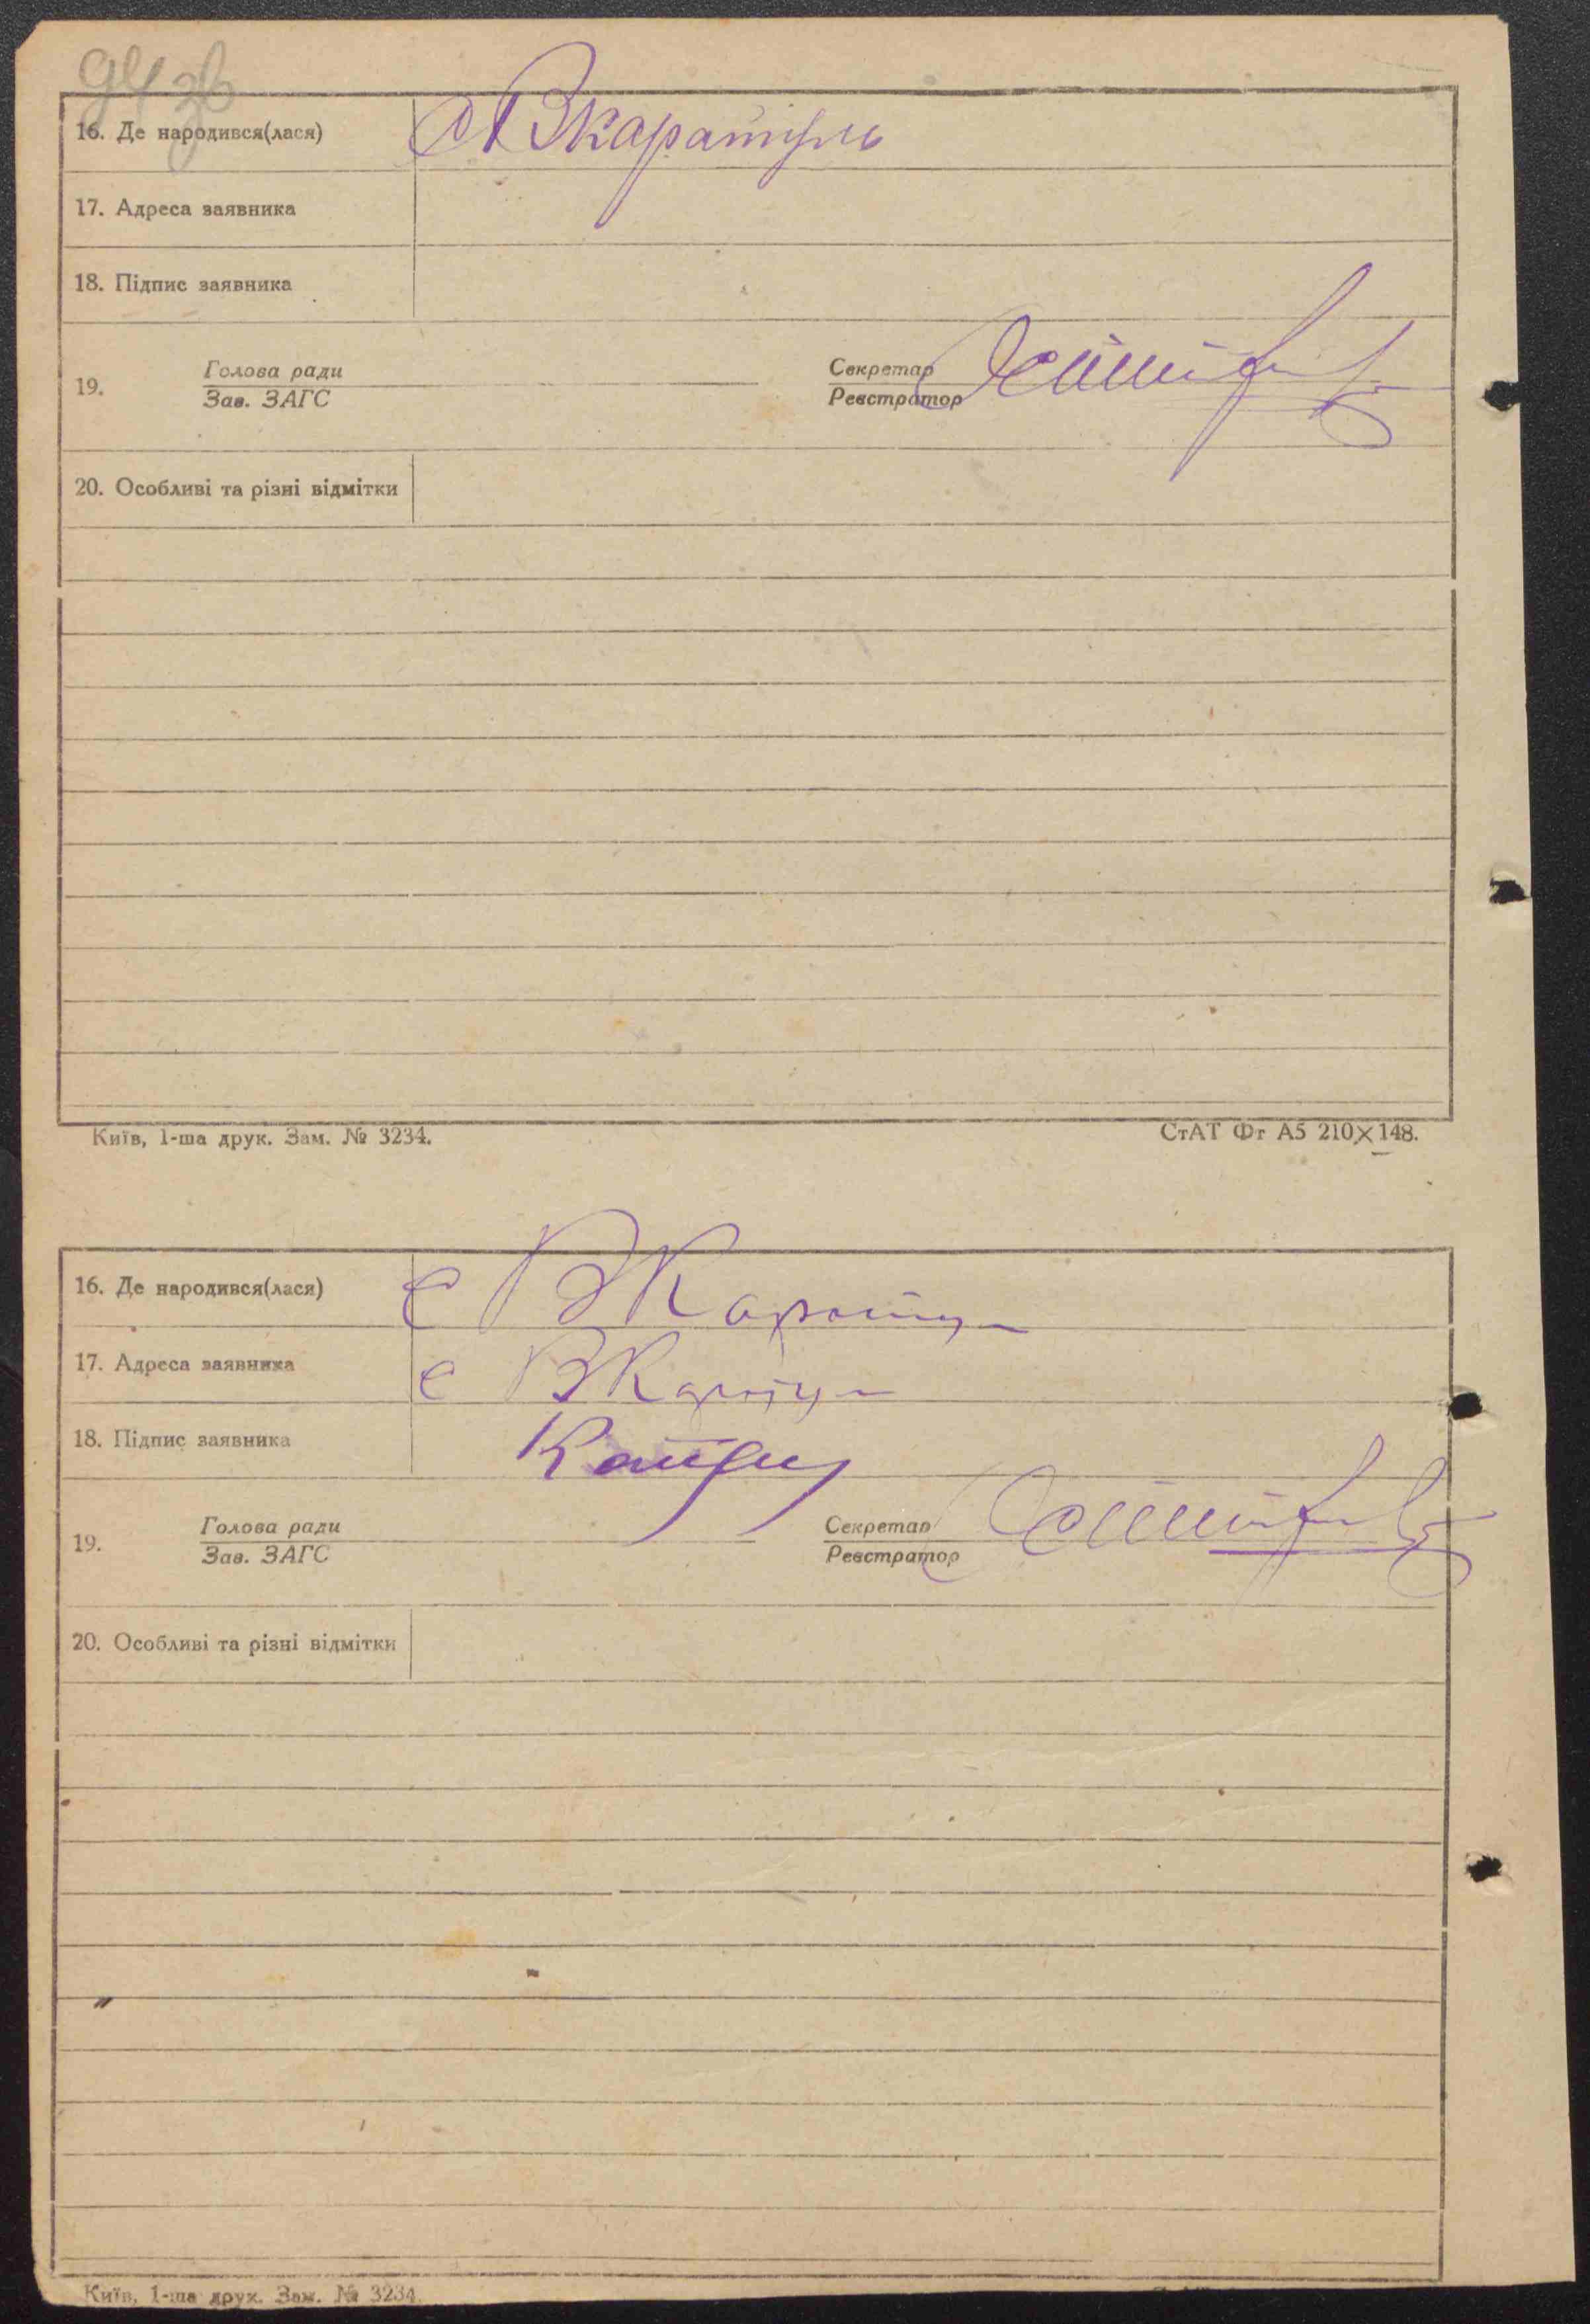 94 зв
16. Де народився(лася) с В Каратуль
17. Адреса заявника
18. Підпис заявника
19. Голова ради Секретар
Зав. ЗАГС Реєстратор
20. Особливі та різні відмітки
Київ, 1-ша друк. Зам. № 3234. СтАТ Фт А5 210×148.
16. Де народився(лася) с В Каратул
17. Адреса заявника с В Каратул
18. Підпис заявника
19. Голова ради Секретар
Зав. ЗАГС Реєстратор
20. Особливі та різні відмітки
Київ, 1-ша друк. Зам. № 3234.